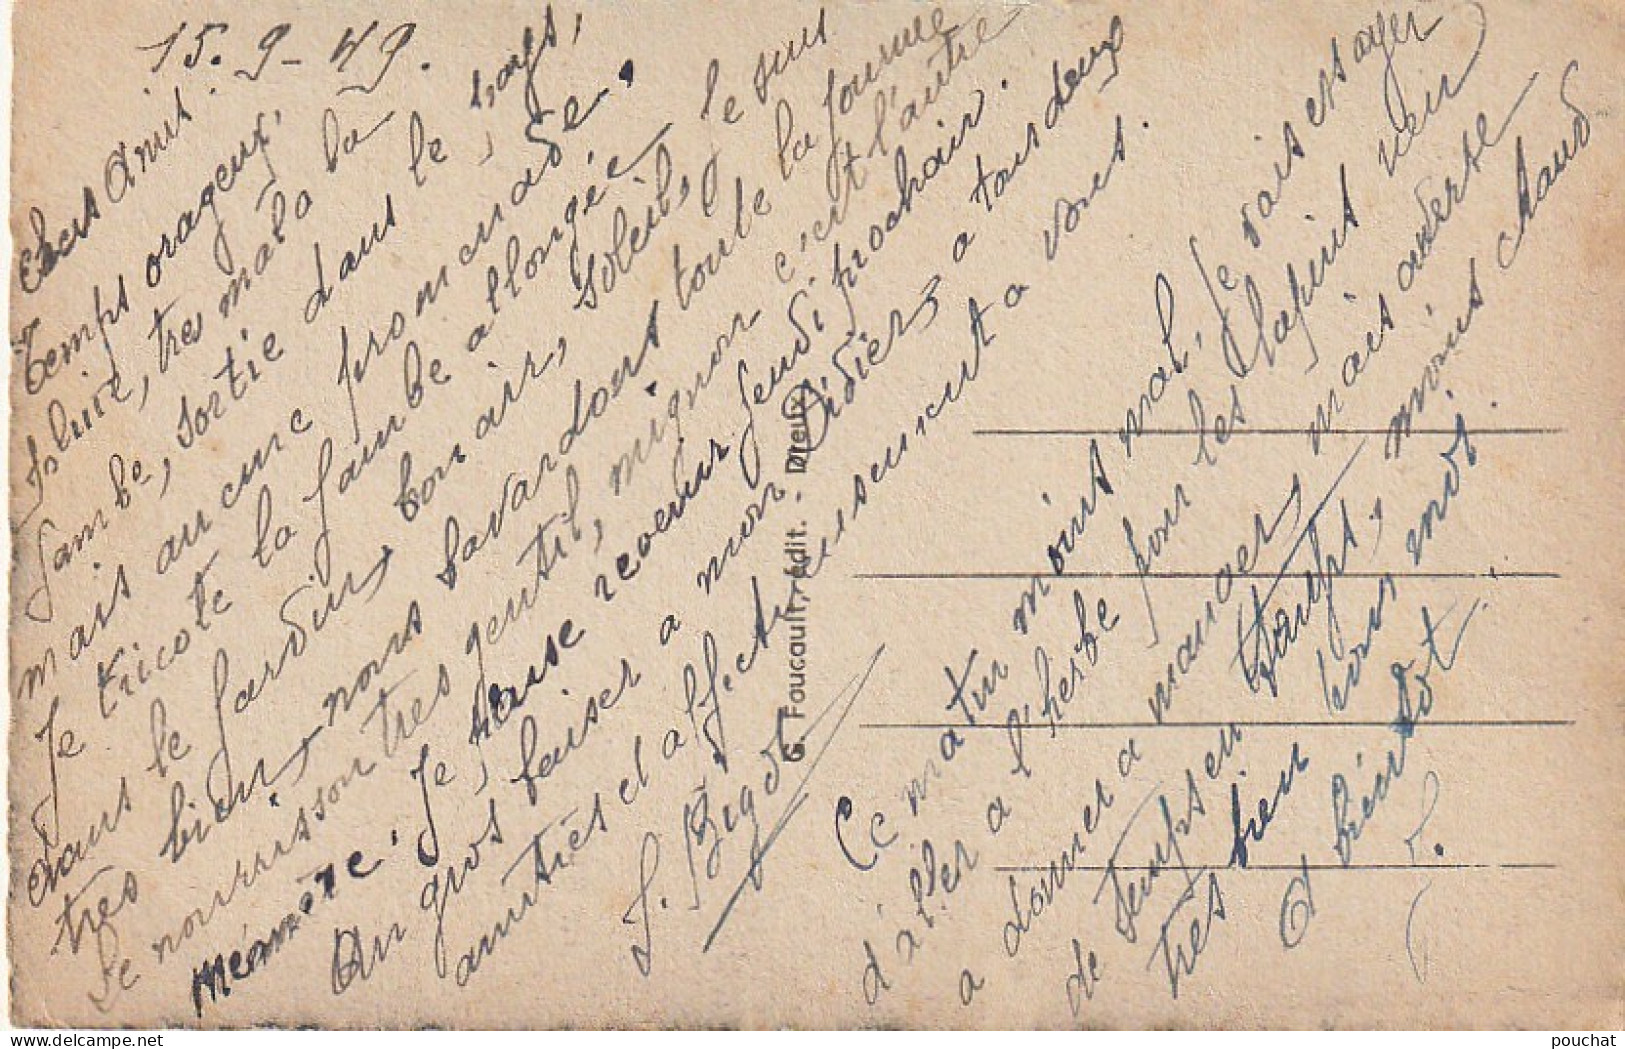 15-9-49.
Chers Amis.
Temps orageux,
pluie, très mal a la
Jambe, sortie dans le pays,
mais aucune promenade,
Je tricote la Jambe allongée
dans le Jardin, bon air, soleil, Je suis
très bien, nous bavardons toute la Journée
Le nourrisson très gentil, mignon c'est l'autre
Mémère. Je pense revenir Jeudi prochain.
Un gros baiser a mon Didier, a tous deux
amitiés et affectueusement a vous.
J. Bigot
Ce matin moins mal, Je vais essayer
d'aller a l'herbe pour les lapins rien
a donner a manger, mais averse
de temps en temps, moins chaud
très bien pour moi.
A bientôt.
G. Foucault, édit. - Dreux
pouchat